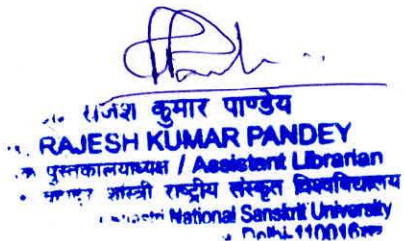 राजेश कुमार पाण्डेय
RAJESH KUMAR PANDEY
पुस्तकालयाध्यक्ष / Assistant Librarian
शास्त्री राष्ट्रीय संस्कृत विश्वविद्यालय
National Sanskrit University
Delhi-110016